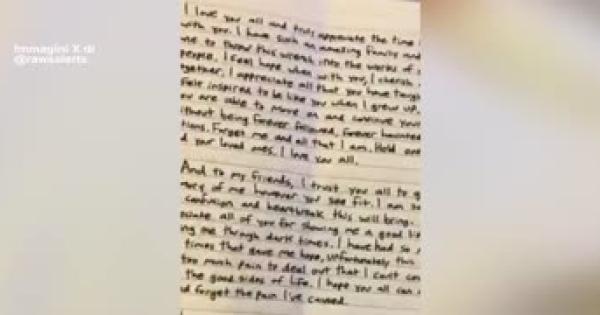 Immagini X di
@rawsalerts
I love you all and truly appreciate the time
with you. I have such an amazing family and
me to throw this wrench into the works of
people. I feel hope when with you, I cherish
together, I appreciate all that you have taug
Felt inspired to be like you when I grew up.
ou are able to move on and continue your
ithout being forever followed, forever haunted
tions. Forget me and all that I am. Hold one
d your loved ones. I love you all.
And to my friends, I trust you all to
mory of me however you see fit. I am so
confusion and heartbreak this will bring.
eciate all of you for showing me a good li
ng me through dark times. I have had so
times that gave me hope, unfortunately this
too much pain to deal out that I can't
the good sides of life. I hope you all can
d forget the pain I've caused.